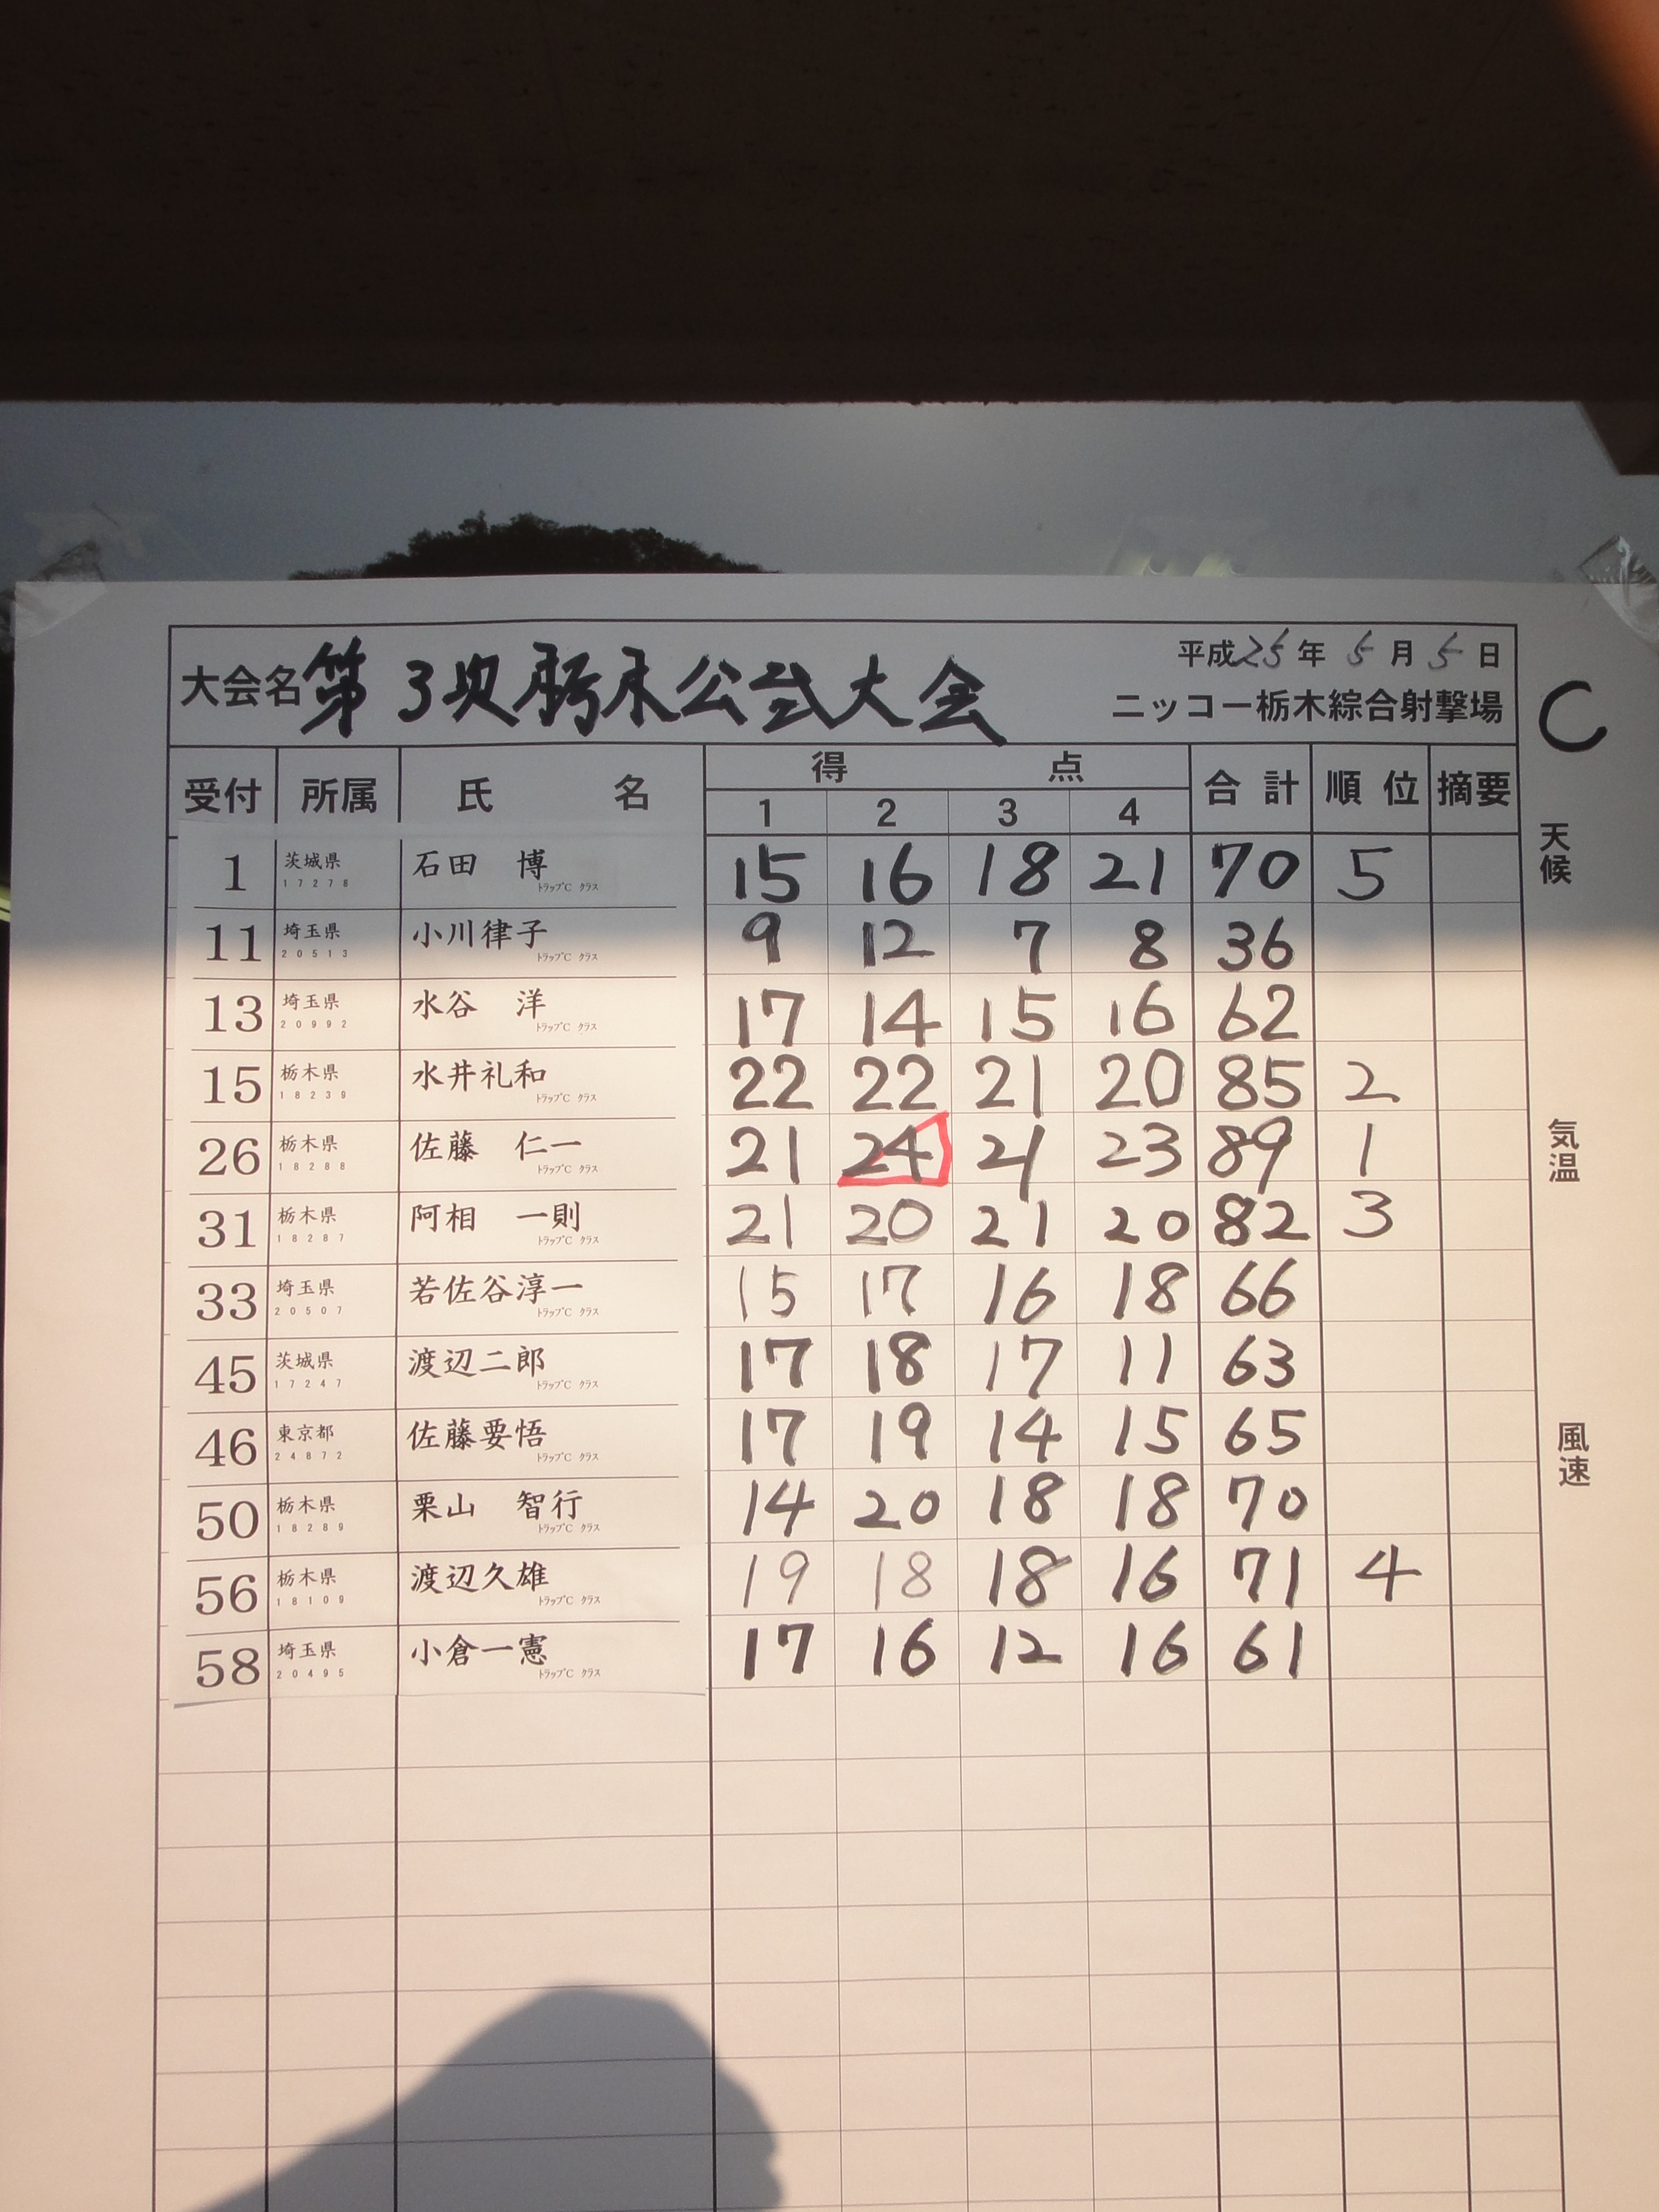 大会名 第3次栃木公式大会 平成25年5月5日
ニッコー栃木綜合射撃場
C
受付 所属 氏名 得点 合計 順位 摘要
1 2 3 4
天候
気温
風速
1 茨城県 石田 博 15 16 18 21 70 5
17278 トラップC クラス
11 埼玉県 小川律子 9 12 7 8 36
20513 トラップC クラス
13 埼玉県 水谷 洋 17 14 15 16 62
20992 トラップC クラス
15 栃木県 水井礼和 22 22 21 20 85 2
18239 トラップC クラス
26 栃木県 佐藤 仁一 21 24 21 23 89 1
18288 トラップC クラス
31 栃木県 阿相 一則 21 20 21 20 82 3
18287 トラップC クラス
33 埼玉県 若佐谷淳一 15 17 16 18 66
20507 トラップC クラス
45 茨城県 渡辺二郎 17 18 17 11 63
17247 トラップC クラス
46 東京都 佐藤要悟 17 19 14 15 65
24872 トラップC クラス
50 栃木県 栗山 智行 14 20 18 18 70
18289 トラップC クラス
56 栃木県 渡辺久雄 19 18 18 16 71 4
18109 トラップC クラス
58 埼玉県 小倉一憲 17 16 12 16 61
20495 トラップC クラス